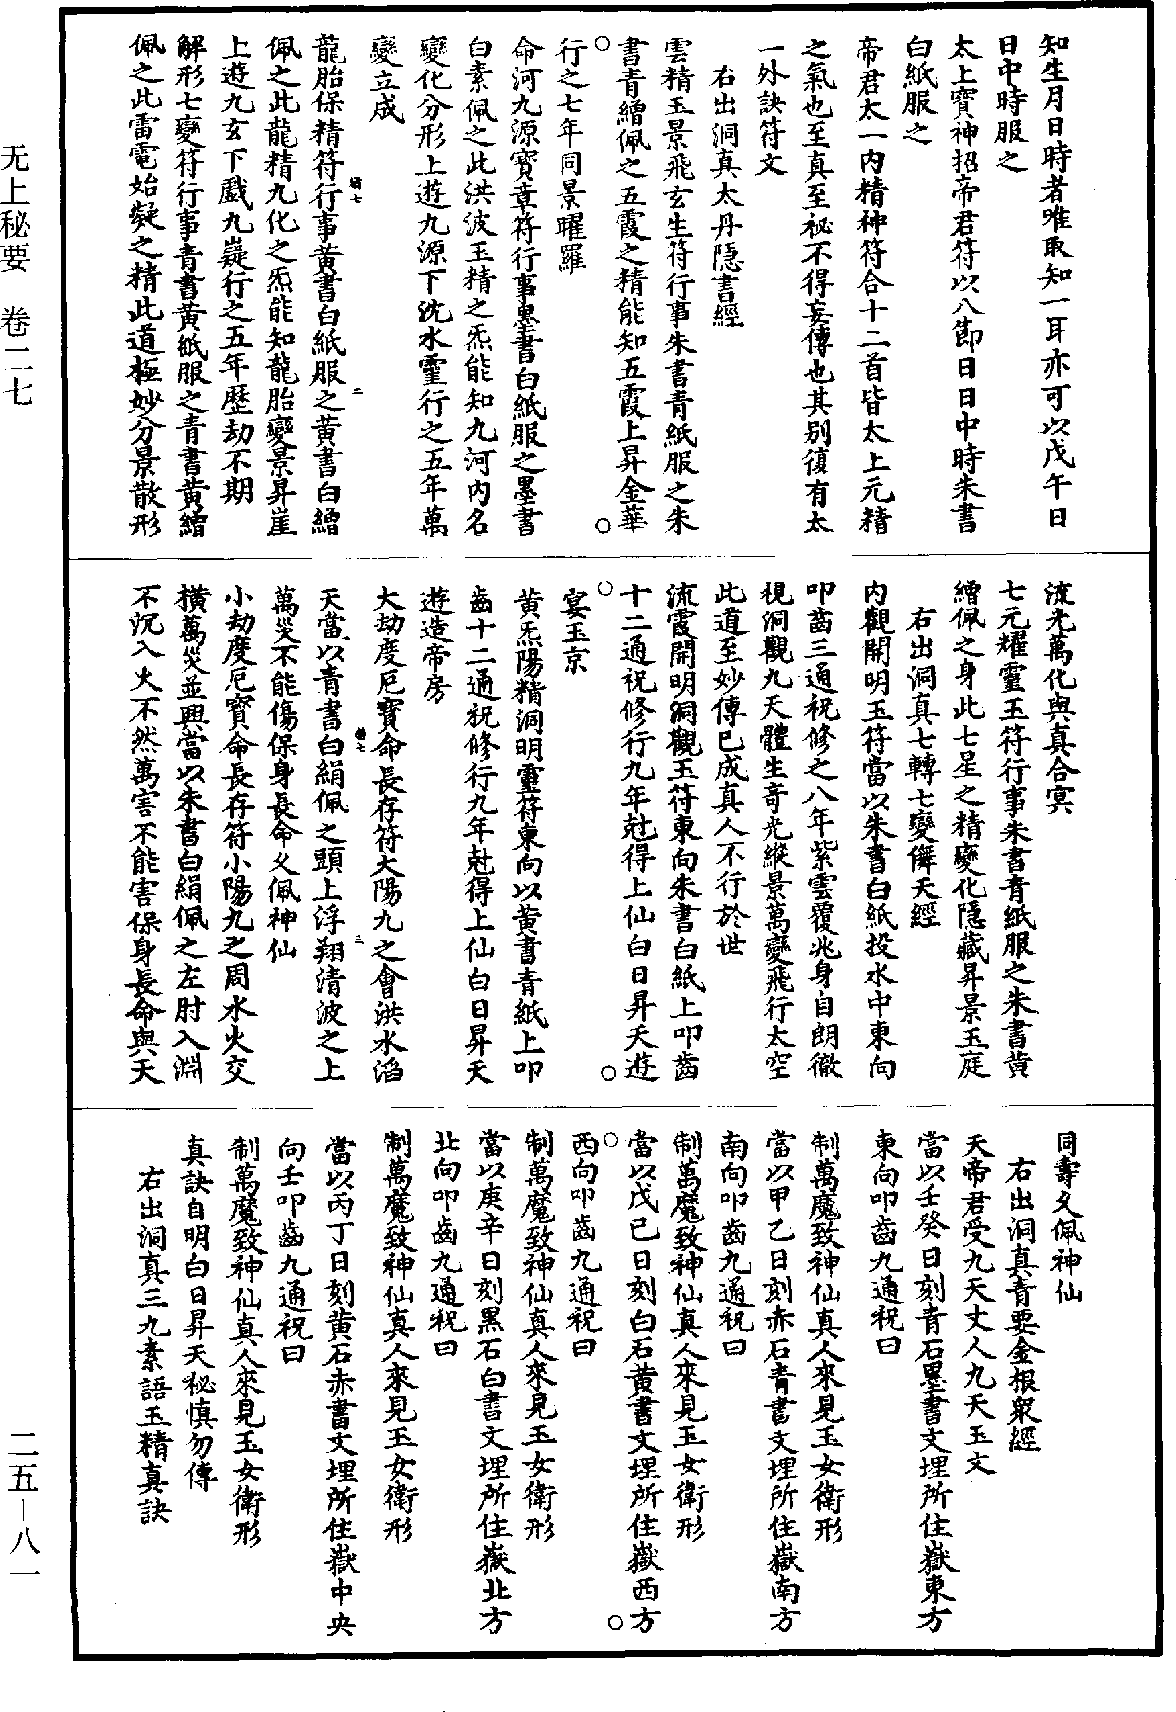 知生月日時者唯取知一耳亦可以戊午日
日中時服之
太上寶神招帝君符以八節日日中時朱書
白紙服之
帝君太一內精神符合十二首皆太上元精
之氣也至真至祕不得妄傳也其别復有太
一外訣符文
右出洞真太丹隱書經
雲精玉景飛玄生符行事朱書青紙服之朱
書青繒佩之五霞之精能知五霞上昇金華
行之七年同景曜羅
命河九源寶章符行事墨書白紙服之墨書
白素佩之此洪波玉精之炁能知九河內名
變化分形上遊九源下沈水靈行之五年萬
變立成
龍胎保精符行事黄書白紙服之黄書白繒
佩之此龍精九化之炁能知龍胎變景昇崖
上遊九玄下戲九嶷行之五年歷劫不期
解形七變符行事青書黄紙服之青書黄繒
佩之此雷電始凝之精此道極妙分景散形
流光萬化與真合冥
七元耀靈玉符行事朱書青紙服之朱書黄
繒佩之身此七星之精變化隱藏昇景玉庭
右出洞真七轉七變儛天經
內觀開明玉符當以朱書白紙投水中東向
叩齒三通祝修之八年紫雲覆兆身自朗徹
視洞觀九天體生奇光縱景萬變飛行太空
此道至妙傳已成真人不行於世
流霞開明洞觀玉符東向朱書白紙上叩齒
十二通祝修行九年尅得上仙白日昇天遊
宴玉京
黄炁陽精洞明靈符東向以黄書青紙上叩
齒十二通祝修行九年尅得上仙白日昇天
遊造帝房
大劫度厄寶命長存符大陽九之會洪水滔
天當以青書白絹佩之頭上浮翔清波之上
萬災不能傷保身長命久佩神仙
小劫度厄寶命長存符小陽九之周水火交
橫萬災並興當以朱書白絹佩之左肘入淵
不沉入火不然萬害不能害保身長命與天
同壽久佩神仙
右出洞真青要金根衆經
天帝君受九天丈人九天玉文
當以壬癸日刻青石墨書文埋所住嶽東方
東向叩齒九通祝曰
制萬魔致神仙真人來見玉女衛形
當以甲乙日刻赤石青書文埋所住嶽南方
南向叩齒九通祝曰
制萬魔致神仙真人來見玉女衛形
當以戊己日刻白石黄書文埋所住嶽西方
西向叩齒九通祝曰
制萬魔致神仙真人來見玉女衛形
當以庚辛日刻黑石白書文埋所住嶽北方
北向叩齒九通祝曰
制萬魔致神仙真人來見玉女衛形
當以丙丁日刻黄石赤書文埋所住嶽中央
向壬叩齒九通祝曰
制萬魔致神仙真人來見玉女衛形
真訣自明白日昇天秘慎勿傳
右出洞真三九素語玉精真訣
无上秘要 卷二七
二五—八一